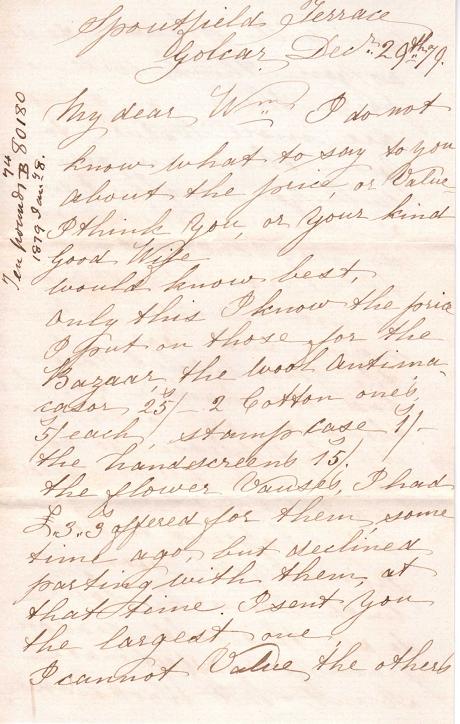 Spoutfield Terrace
Golcar, Decr. 29th 79.
My dear Wm I do not
know what to say to you
about the price, or Value
I think You, or Your kind
Good Wife
would know best,
only this I know the price
I put on those for the
Bazaar, the wool Antima-
casor 25/- 2 Cotton ones,
5/ each, stamp case 1/-
the handscreens 15/.
the flower Vauses, I had
£.3.,3 offered for them, some
time ago, but declined
parting with them, at
that time. I sent You
the largest one,
I cannot Value the others
Ten pounds 7/4 B 80180
1879 Jany. 8.